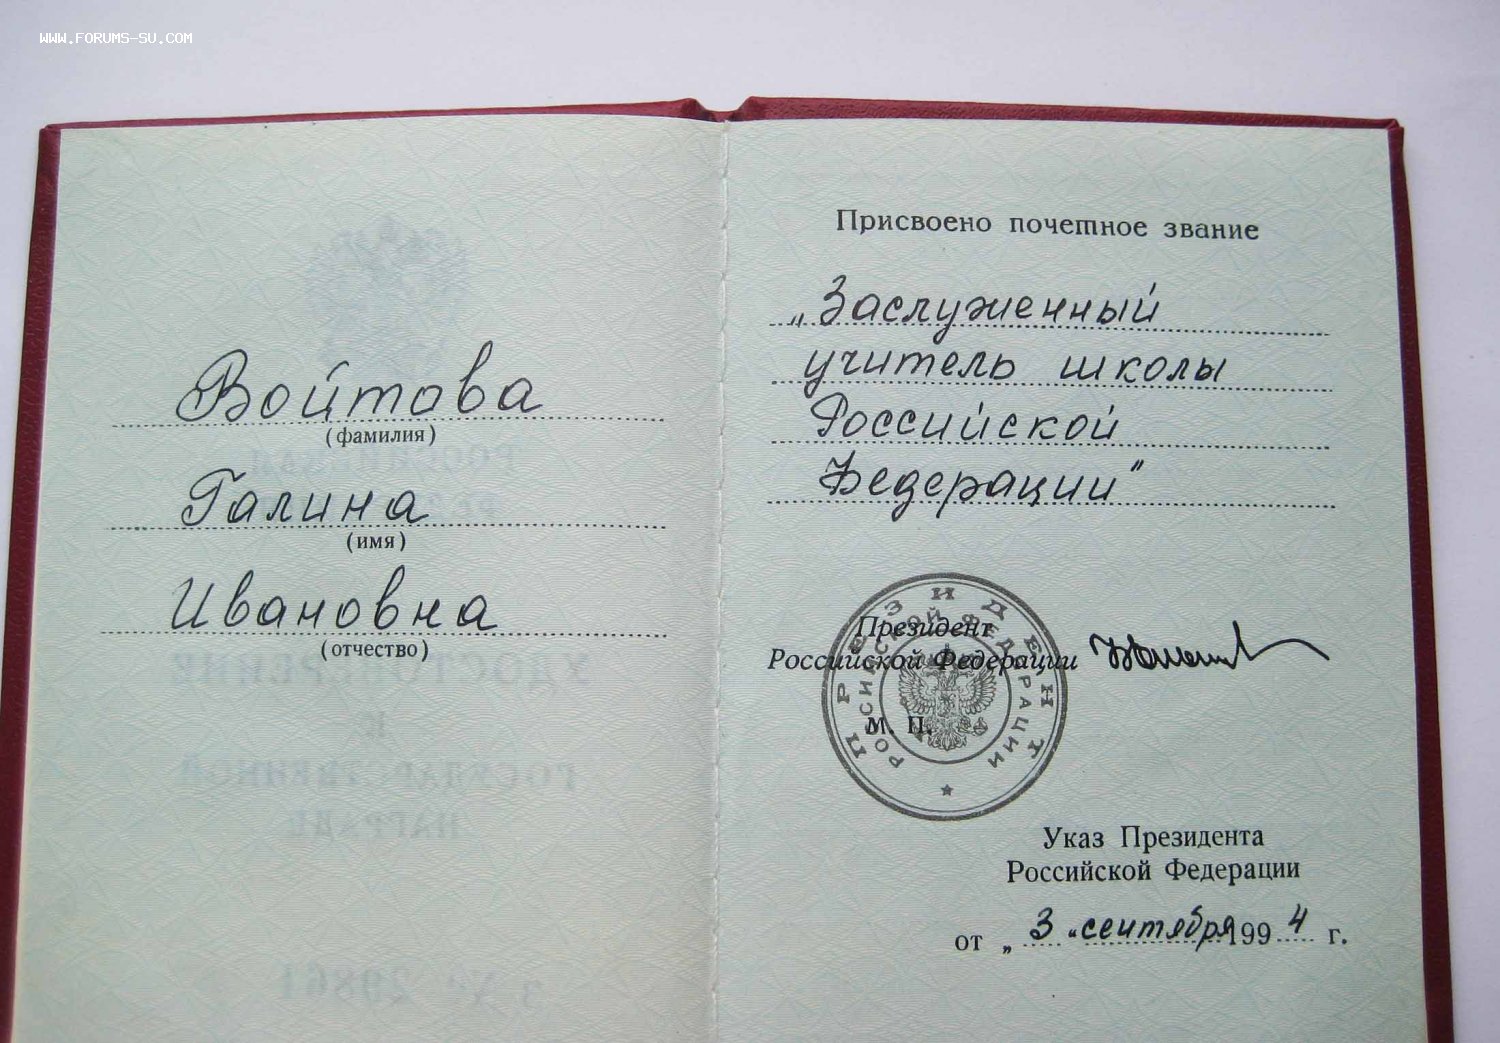 WWW.FORUMS-SU.COM
Войтова
(фамилия)
Галина
(имя)
Ивановна
(отчество)
Присвоено почетное звание
„Заслуженный
учитель школы
Российской
Федерации"
Президент
Российской Федерации
М. П.
ПРЕЗИДЕНТ
РОССИЙСКОЙ ФЕДЕРАЦИИ
Указ Президента
Российской Федерации
от „ 3 “ сентября 1994 г.